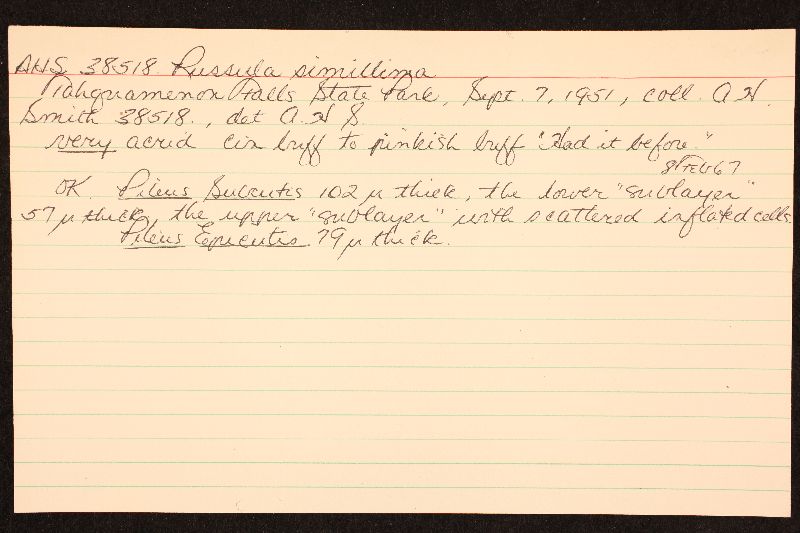 AHS 38518 Russula simillima
Tahquamenon Falls State Park, Sept. 7, 1951, coll. A.H.
Smith 38518., det A.H S.
very acrid cin buff to pinkish buff "Had it before."
8 FEB 67
OK. Pileus Subcutis 102 µ thick, the lower "sublayer"
57 µ thick, the upper "sublayer" with scattered inflated cells.
Pileus Epicutis 79 µ thick.